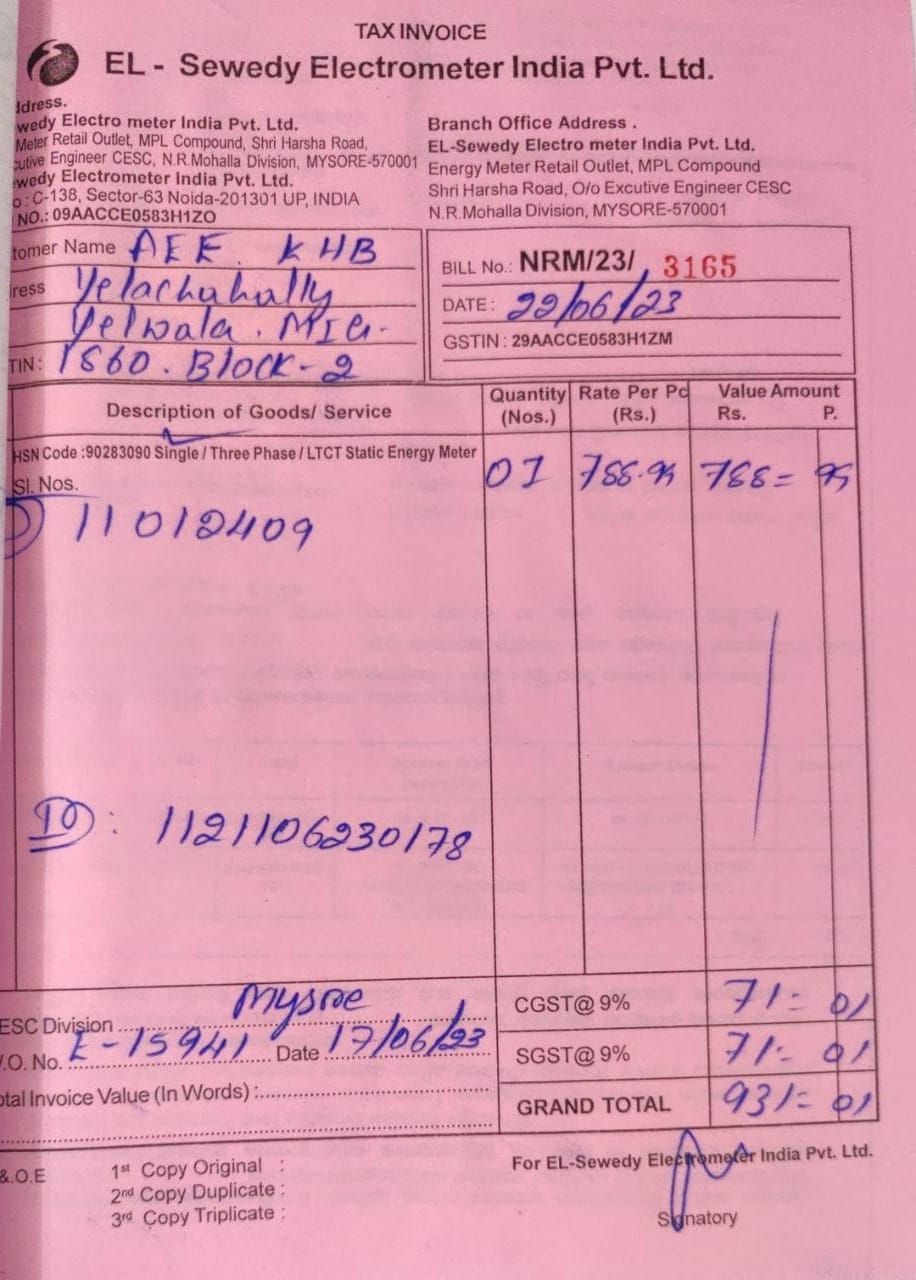 TAX INVOICE
EL - Sewedy Electrometer India Pvt. Ltd.
ddress.
wedy Electro meter India Pvt. Ltd.
Meter Retail Outlet, MPL Compound, Shri Harsha Road,
cutive Engineer CESC, N.R.Mohalla Division, MYSORE-570001
ewedy Electrometer India Pvt. Ltd.
o : C-138, Sector-63 Noida-201301 UP, INDIA
NO.: 09AACCE0583H1ZO
Branch Office Address .
EL-Sewedy Electro meter India Pvt. Ltd.
Energy Meter Retail Outlet, MPL Compound
Shri Harsha Road, O/o Excutive Engineer CESC
N.R.Mohalla Division, MYSORE-570001
tomer Name AEE. KHB
ress Yelachahally
Yelwala. MIG-
TIN: 1860. Block-2
BILL No.: NRM/23/ 3165
DATE: 22/06/23
GSTIN : 29AACCE0583H1ZM
Description of Goods/ Service Quantity (Nos.) Rate Per Pc (Rs.) Value Amount Rs. P.
HSN Code :90283090 Single / Three Phase / LTCT Static Energy Meter 01 788.95 788= 95
Sl. Nos.
1) 11012409
ID: 1121106230178
ESC Division Mysore
.O. No. E-15941 Date 17/06/23
otal Invoice Value (In Words) :
CGST@ 9% 71- 01
SGST@ 9% 71- 01
GRAND TOTAL 931= 01
&.O.E
1st Copy Original :
2nd Copy Duplicate :
3rd Copy Triplicate :
For EL-Sewedy Electrometer India Pvt. Ltd.
Signatory